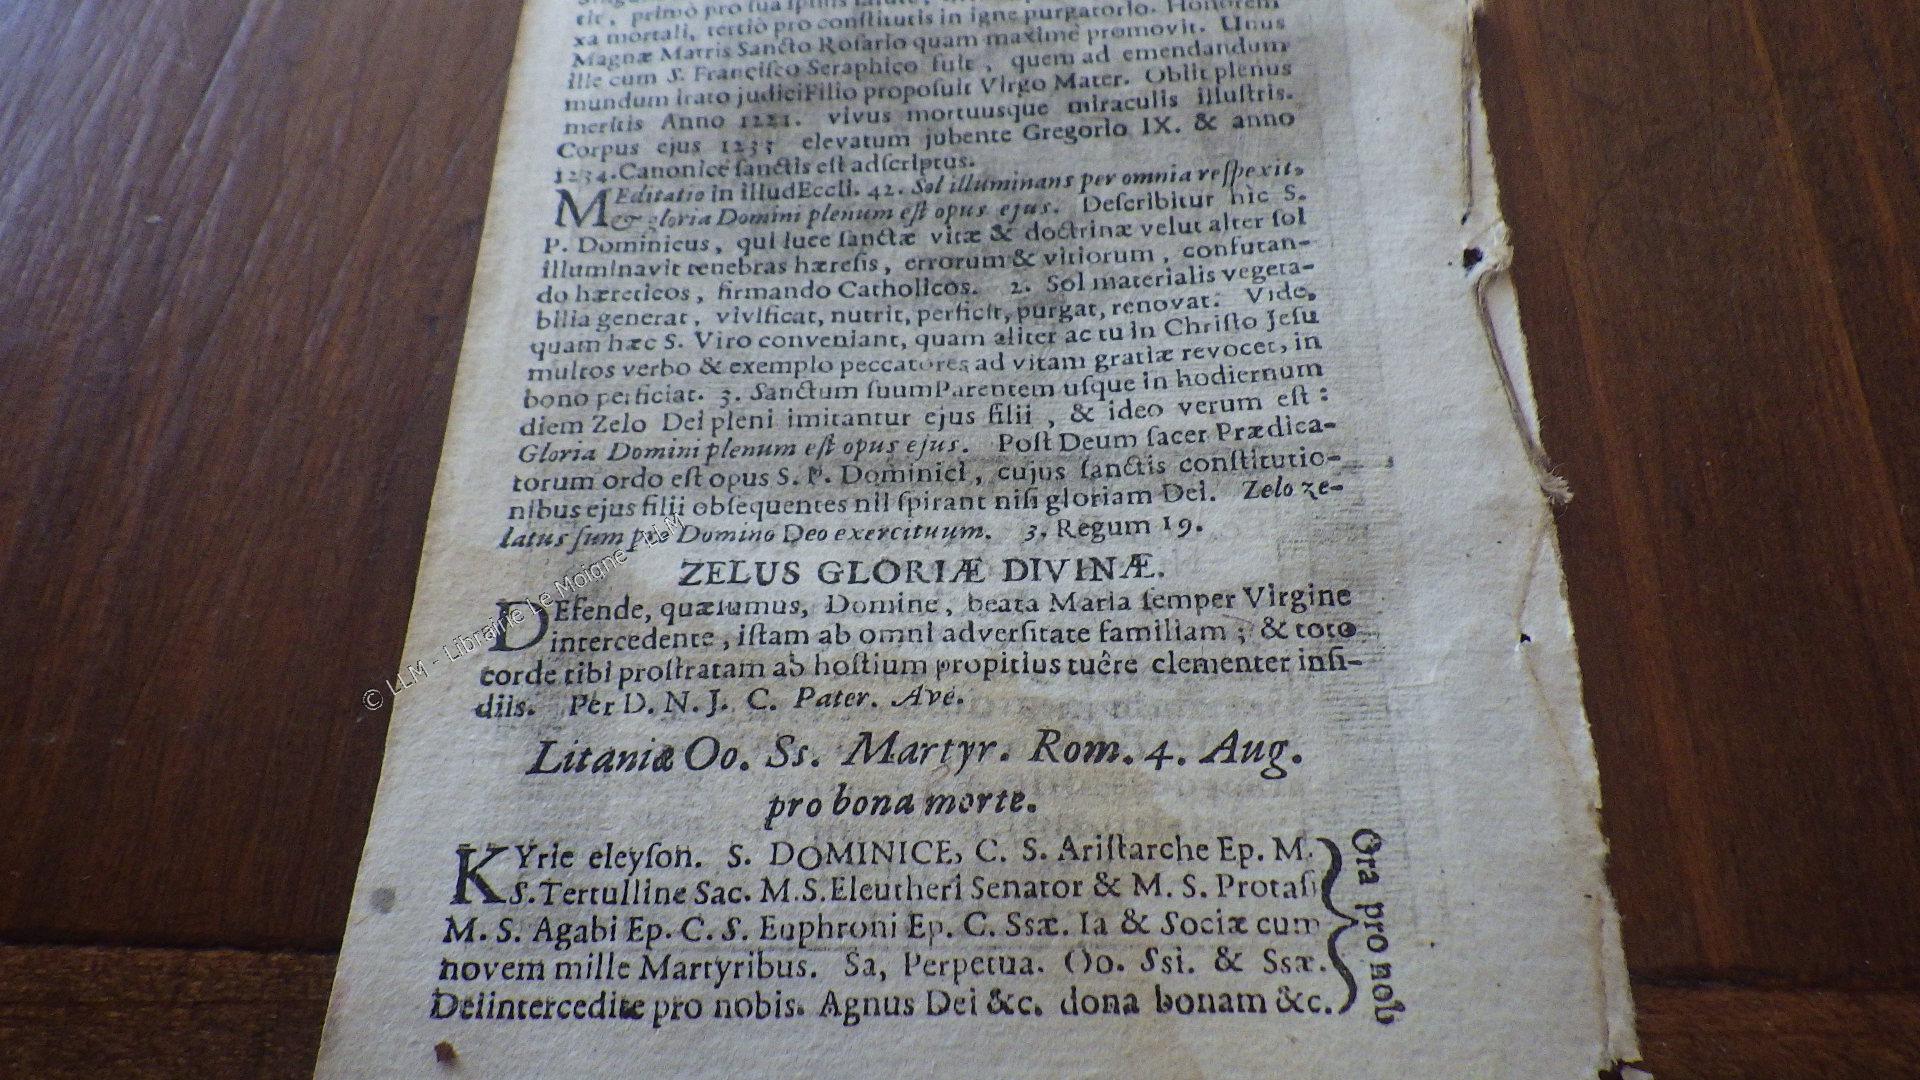 tit, primò pro sua ipsius salute,
xa mortali, tertiò pro constitutis in igne purgatorio. Honorem
Magnæ Matris Sancto Rosario quam maximè promovit. Unus
ille cum S. Francisco Seraphico fuit, quem ad emendandum
mundum irato judiciFilio proposuit Virgo Mater. Obiit plenus
meritis Anno 1221. vivus mortuusque miraculis illustris.
Corpus ejus 1233 elevatum jubente Gregorio IX. & anno
1234. Canonicè sanctis est adscriptus.
MEditatio in illudEccli. 42. Sol illuminans per omnia respexit,
& gloria Domini plenum est opus ejus. Describitur hìc S.
P. Dominicus, qui luce sanctæ vitæ & doctrinæ velut alter sol
illuminavit tenebras hæresis, errorum & vitiorum, confutan-
do hæreticos, firmando Catholicos. 2. Sol materialis vegeta-
bilia generat, vivificat, nutrit, perficit, purgat, renovat. Vide,
quam hæc S. Viro conveniant, quam aliter ac tu in Christo Jesu
multos verbo & exemplo peccatores ad vitam gratiæ revocet, in
bono perficiat. 3. Sanctum suumParentem usque in hodiernum
diem Zelo Dei pleni imitantur ejus filii, & ideo verum est:
Gloria Domini plenum est opus ejus. Post Deum sacer Prædica-
torum ordo est opus S. P. Dominici, cujus sanctis constitutio-
nibus ejus filii obsequentes nil spirant nisi gloriam Dei. Zelo ze-
latus sum pro Domino Deo exercituum. 3. Regum 19.
ZELUS GLORIÆ DIVINÆ.
DEfende, quæsumus, Domine, beata Maria semper Virgine
intercedente, istam ab omni adversitate familiam; & toto
corde tibi prostratam ab hostium propitius tuêre clementer insi-
diis. Per D. N. J. C. Pater. Ave.
Litaniæ Oo. Ss. Martyr. Rom. 4. Aug.
pro bona morte.
KYrie eleyson. S. DOMINICE, C. S. Aristarche Ep. M.
S. Tertulline Sac. M. S. Eleutheri Senator & M. S. Protasi
M. S. Agabi Ep. C. S. Euphroni Ep. C. Ssæ. Ia & Sociæ cum
novem mille Martyribus. Sa, Perpetua. Oo. Ssi. & Ssæ.
Deiintercedite pro nobis. Agnus Dei &c. dona bonam &c.
Ora pro nob
© LLM - Librairie Le Moigne - LLM